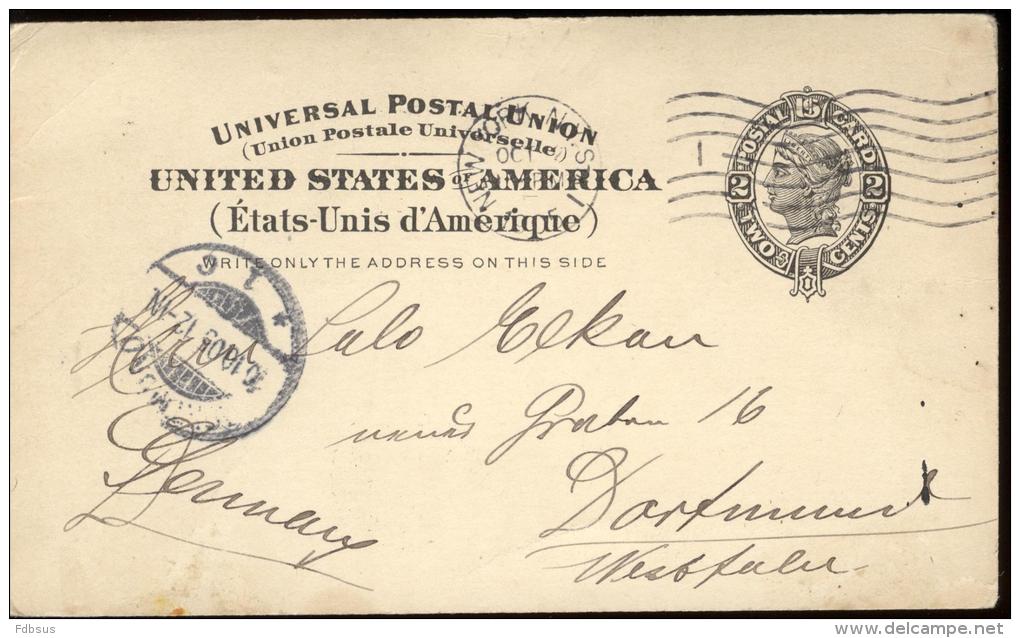 UNIVERSAL POSTAL UNION
(Union Postale Universelle)
UNITED STATES OF AMERICA
(États-Unis d'Amérique)
WRITE ONLY THE ADDRESS ON THIS SIDE
NEW YORK, N.Y. STA.
OCT
1
POSTAL 15 CARD
2 2
TWO CENTS
Herrn Salo Elkan
neuer Graben 16
Dortmund
Westfalen
Germany
Fdbsus
delcampe.net